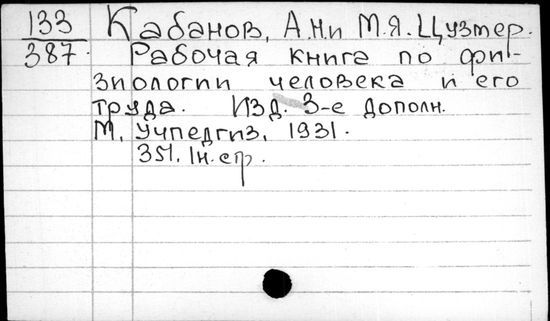 133 Кабанов, А.Н и М.Я. Цузмер.
387. Рабочая книга по фи-
зиологии человека и его
труда. Изд. 3-е дополн.
М, Учпедгиз, 1931.
351. 1н. стр.